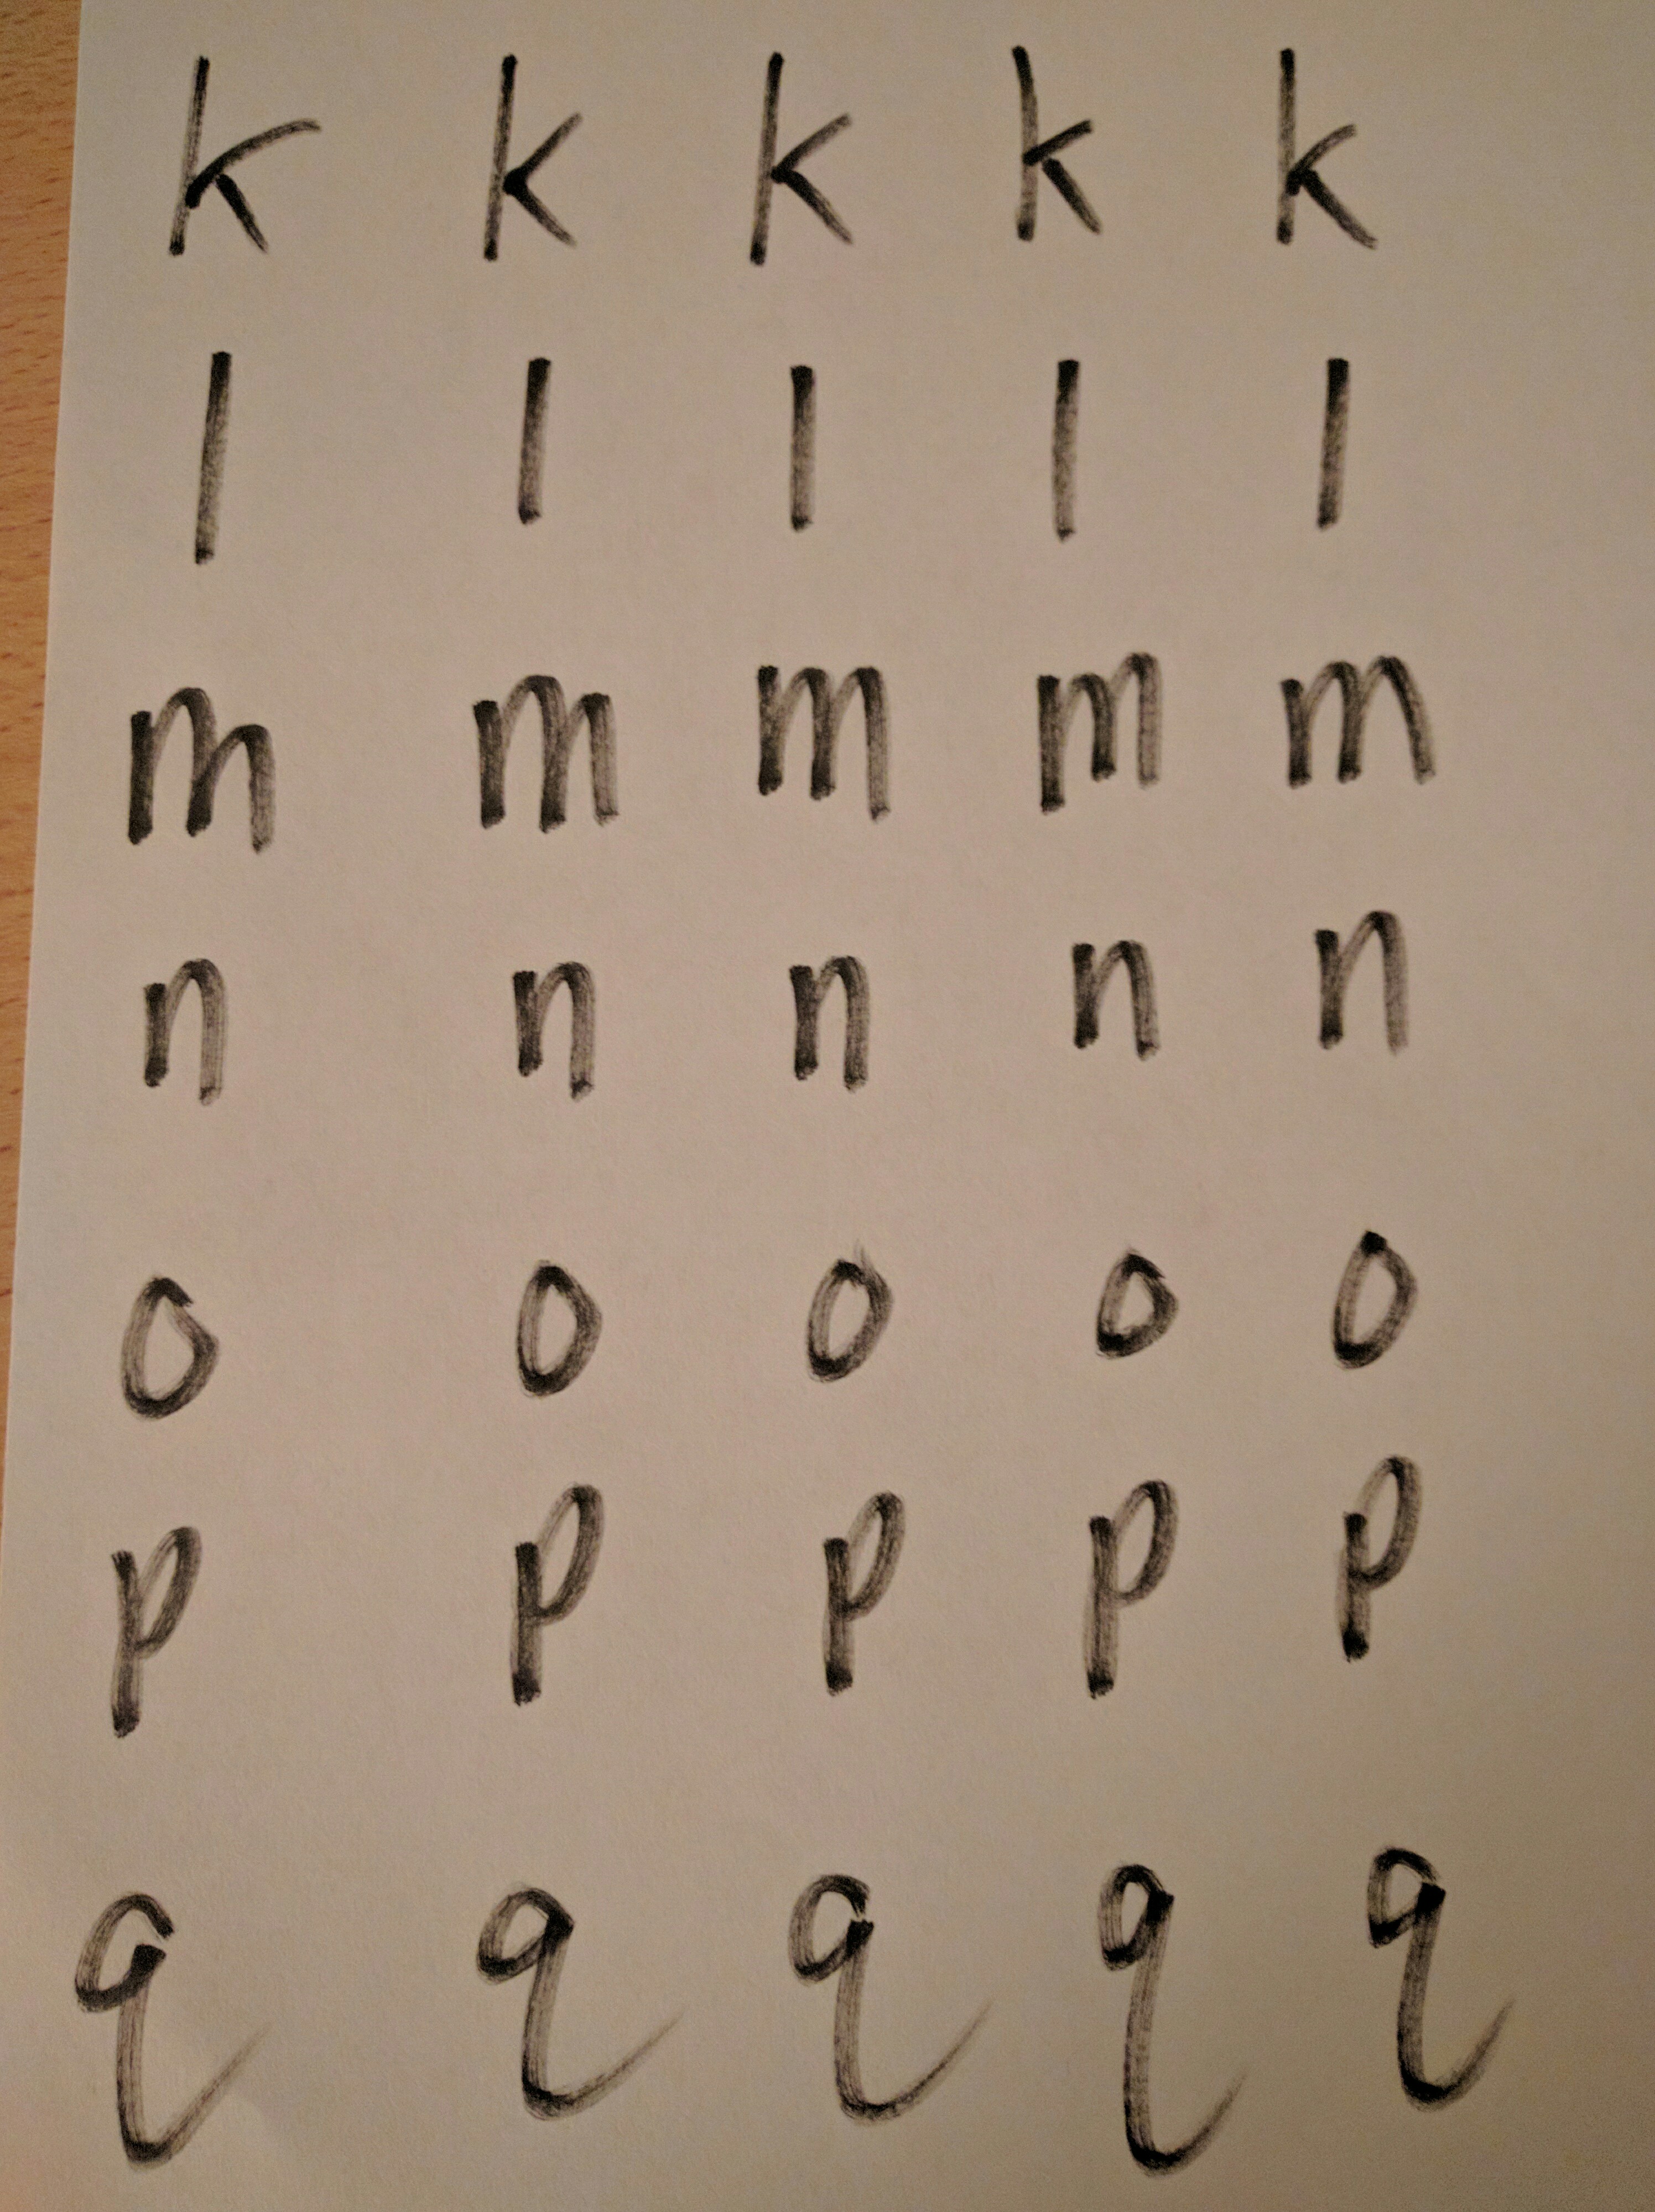 k k k k k
l l l l l
m m m m m
n n n n n
o o o o o
p p p p p
q q q q q